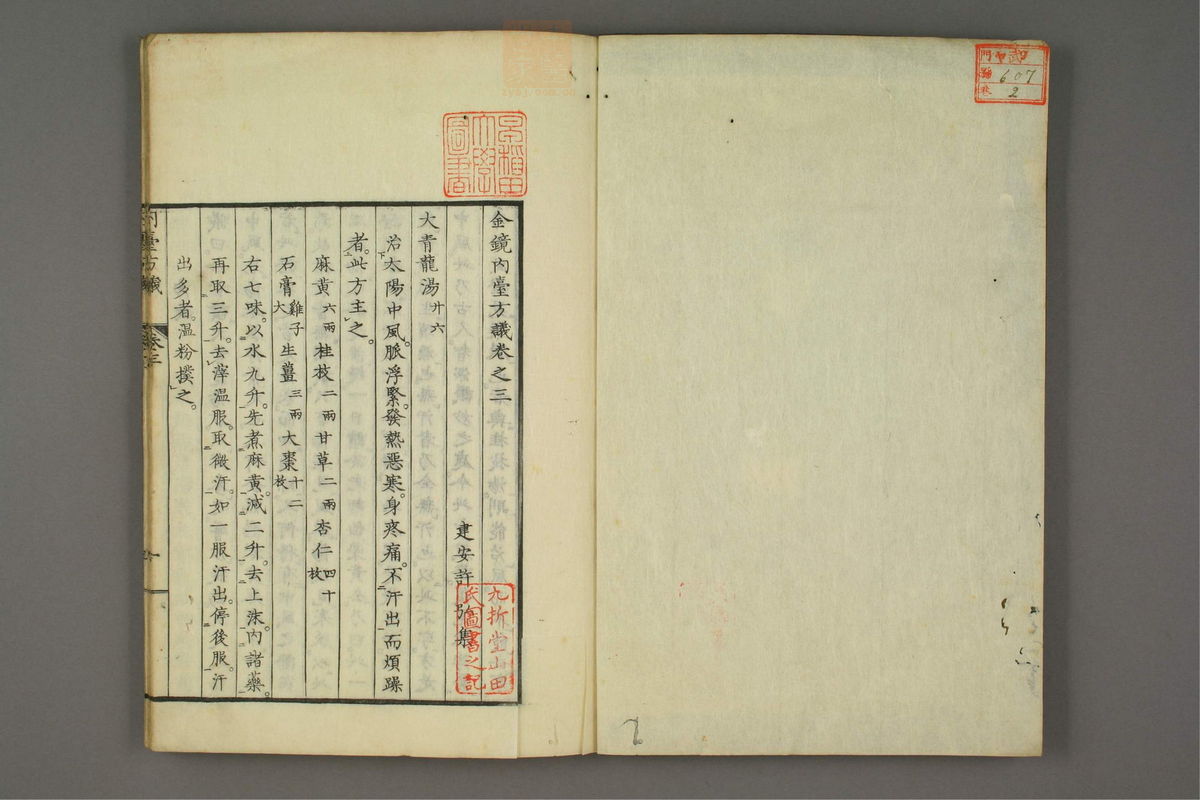 金鏡內臺方議卷之三
建安許弘集
大青龍湯 廾六
治太陽中風。脈浮緊。發熱惡寒。身疼痛。不汗出而煩躁
者。此方主之。
麻黃六兩 桂枝二兩 甘草二兩 杏仁四十枚
石膏雞子大 生薑三兩 大棗十二枚
右七味。以水九升。先煮麻黃。減二升。去上沫。內諸藥。
再取三升。去滓溫服。取微汗。如一服汗出。停後服。汗
出多者。溫粉撲之。
早稲田大學圖書
九折堂山田氏圖書之記
門
號 607
卷 2